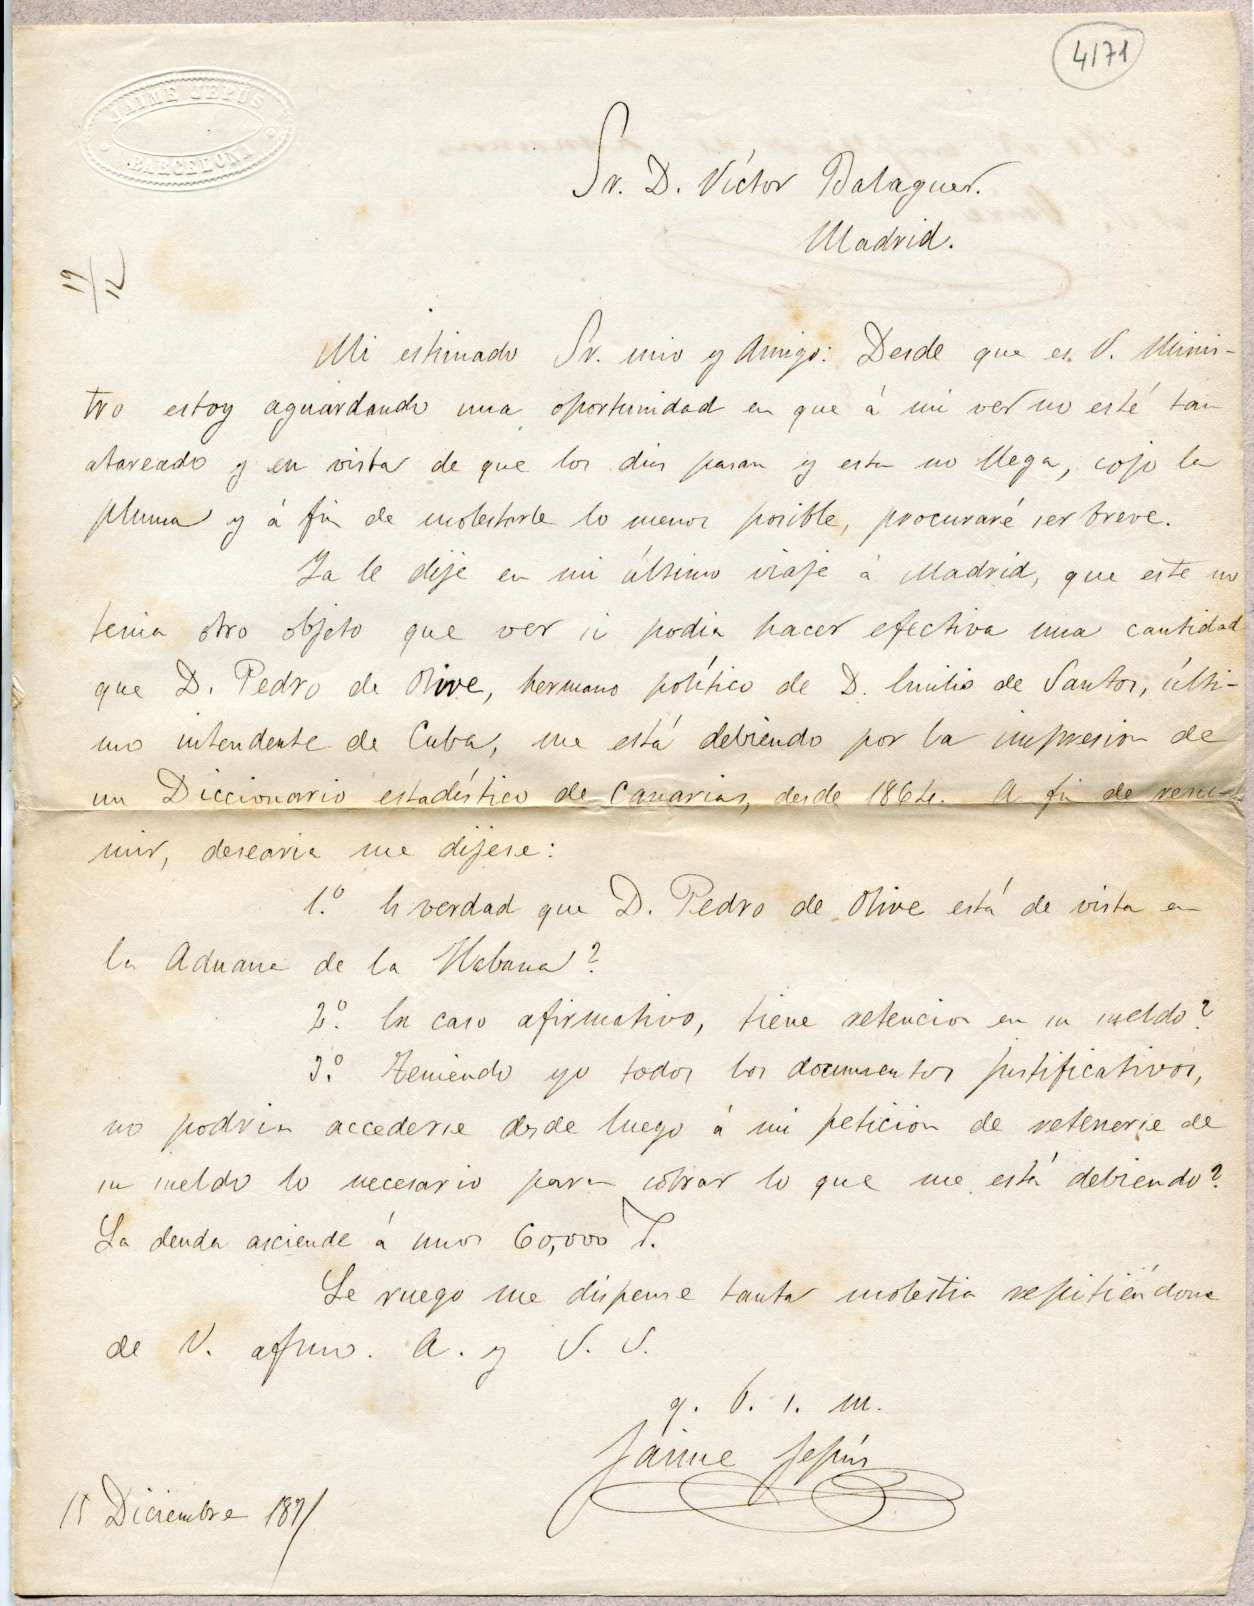 4171
JAIME JEPÚS
BARCELONA
Sr. D. Víctor Balaguer.
Madrid.
19/12
Mi estimado Sr. mio y Amigo: Desde que es V. Minis-
tro estoy aguardando una oportunidad en que á mi ver no esté tan
atareado y en vista de que los dias pasan y esta no llega, cojo la
pluma y á fin de molestarle lo menos posible, procuraré ser breve.
Ya le dije en mi último viaje á Madrid, que este no
tenia otro objeto que ver si podia hacer efectiva una cantidad
que D. Pedro de Olive, hermano político de D. Emilio de Santos, últi-
mo intendente de Cuba, me está debiendo por la impresion de
un Diccionario estadístico de Canarias, desde 1864. A fin de resu-
mir, desearia me dijese:
1.º Es verdad que D. Pedro de Olive está de vista en
la Aduana de la Habana?
2.º En caso afirmativo, tiene retencion en su sueldo?
3.º Teniendo yo todos los documentos justificativos,
no podria accederse desde luego á mi peticion de retenerse de
su sueldo lo necesario para cobrar lo que me está debiendo?
La deuda asciende á unos 60,000
Le ruego me dispense tanta molestia repitiéndome
de V. afmo. A. y S. S.
q. b. s. m.
Jaime Jepús
15 Diciembre 1871